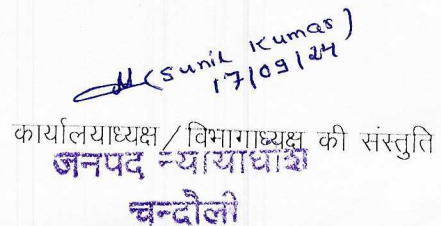 (Sunil Kumar)
17/09/24
कार्यालयाध्यक्ष / विभागाध्यक्ष की संस्तुति
जनपद न्यायाधीश
चन्दौली